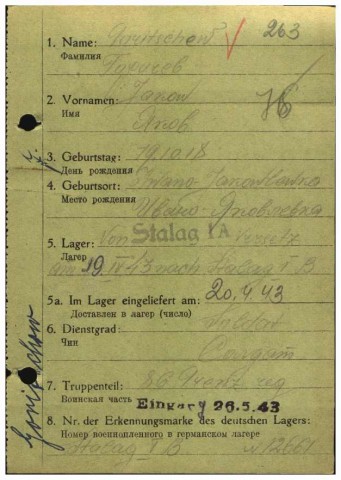 263
1. Name:
Фамилия
2. Vornamen: Jakow
Имя Яков
76
3. Geburtstag: 19.10.18
День рождения
4. Geburtsort: Iwano-Jakowlewka
Место рождения Ивано-Яковлевка
5. Lager: Von Stalag I A Versetz
Лагер am 19.IV.43 nach Stalag I B
5a. Im Lager eingeliefert am: 20.4.43
Доставлен в лагер (число)
6. Dienstgrad: Soldat
Чин Солдат
7. Truppenteil: 86 Grenz
Воинская часть Eingang 26.5.43
8. Nr. der Erkennungsmarke des deutschen Lagers:
Номер военнопленного в германском лагере
Stalag I B N 12661